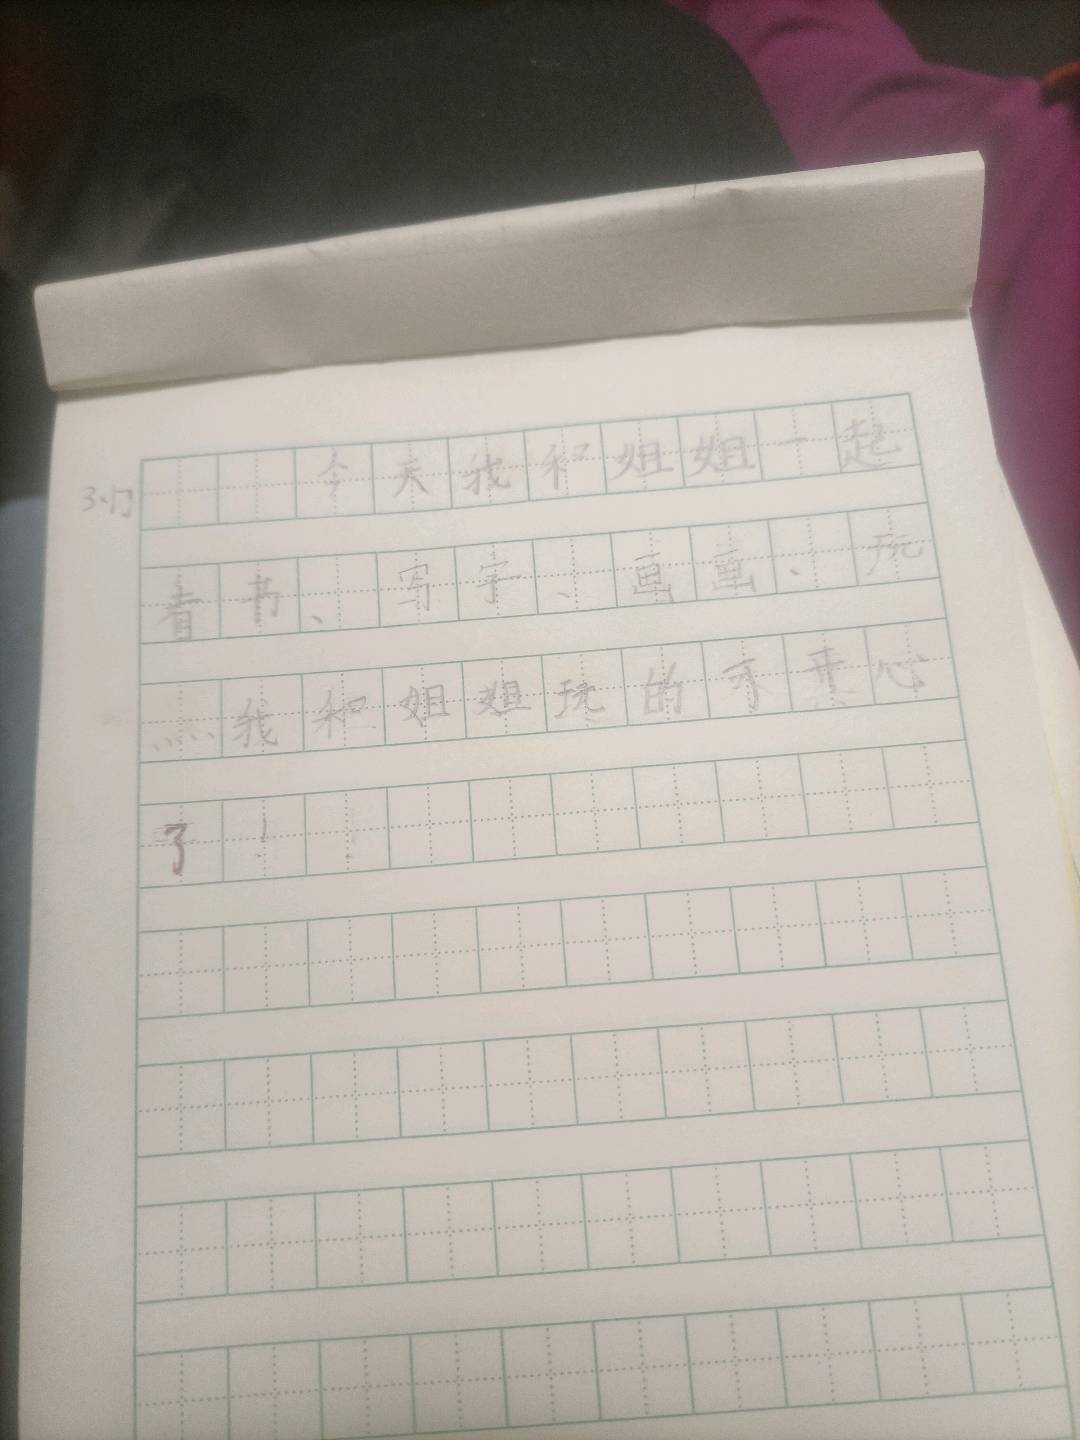 今天我和姐姐一起
看书、写字、画画、玩
……我和姐姐玩的可开心
了!